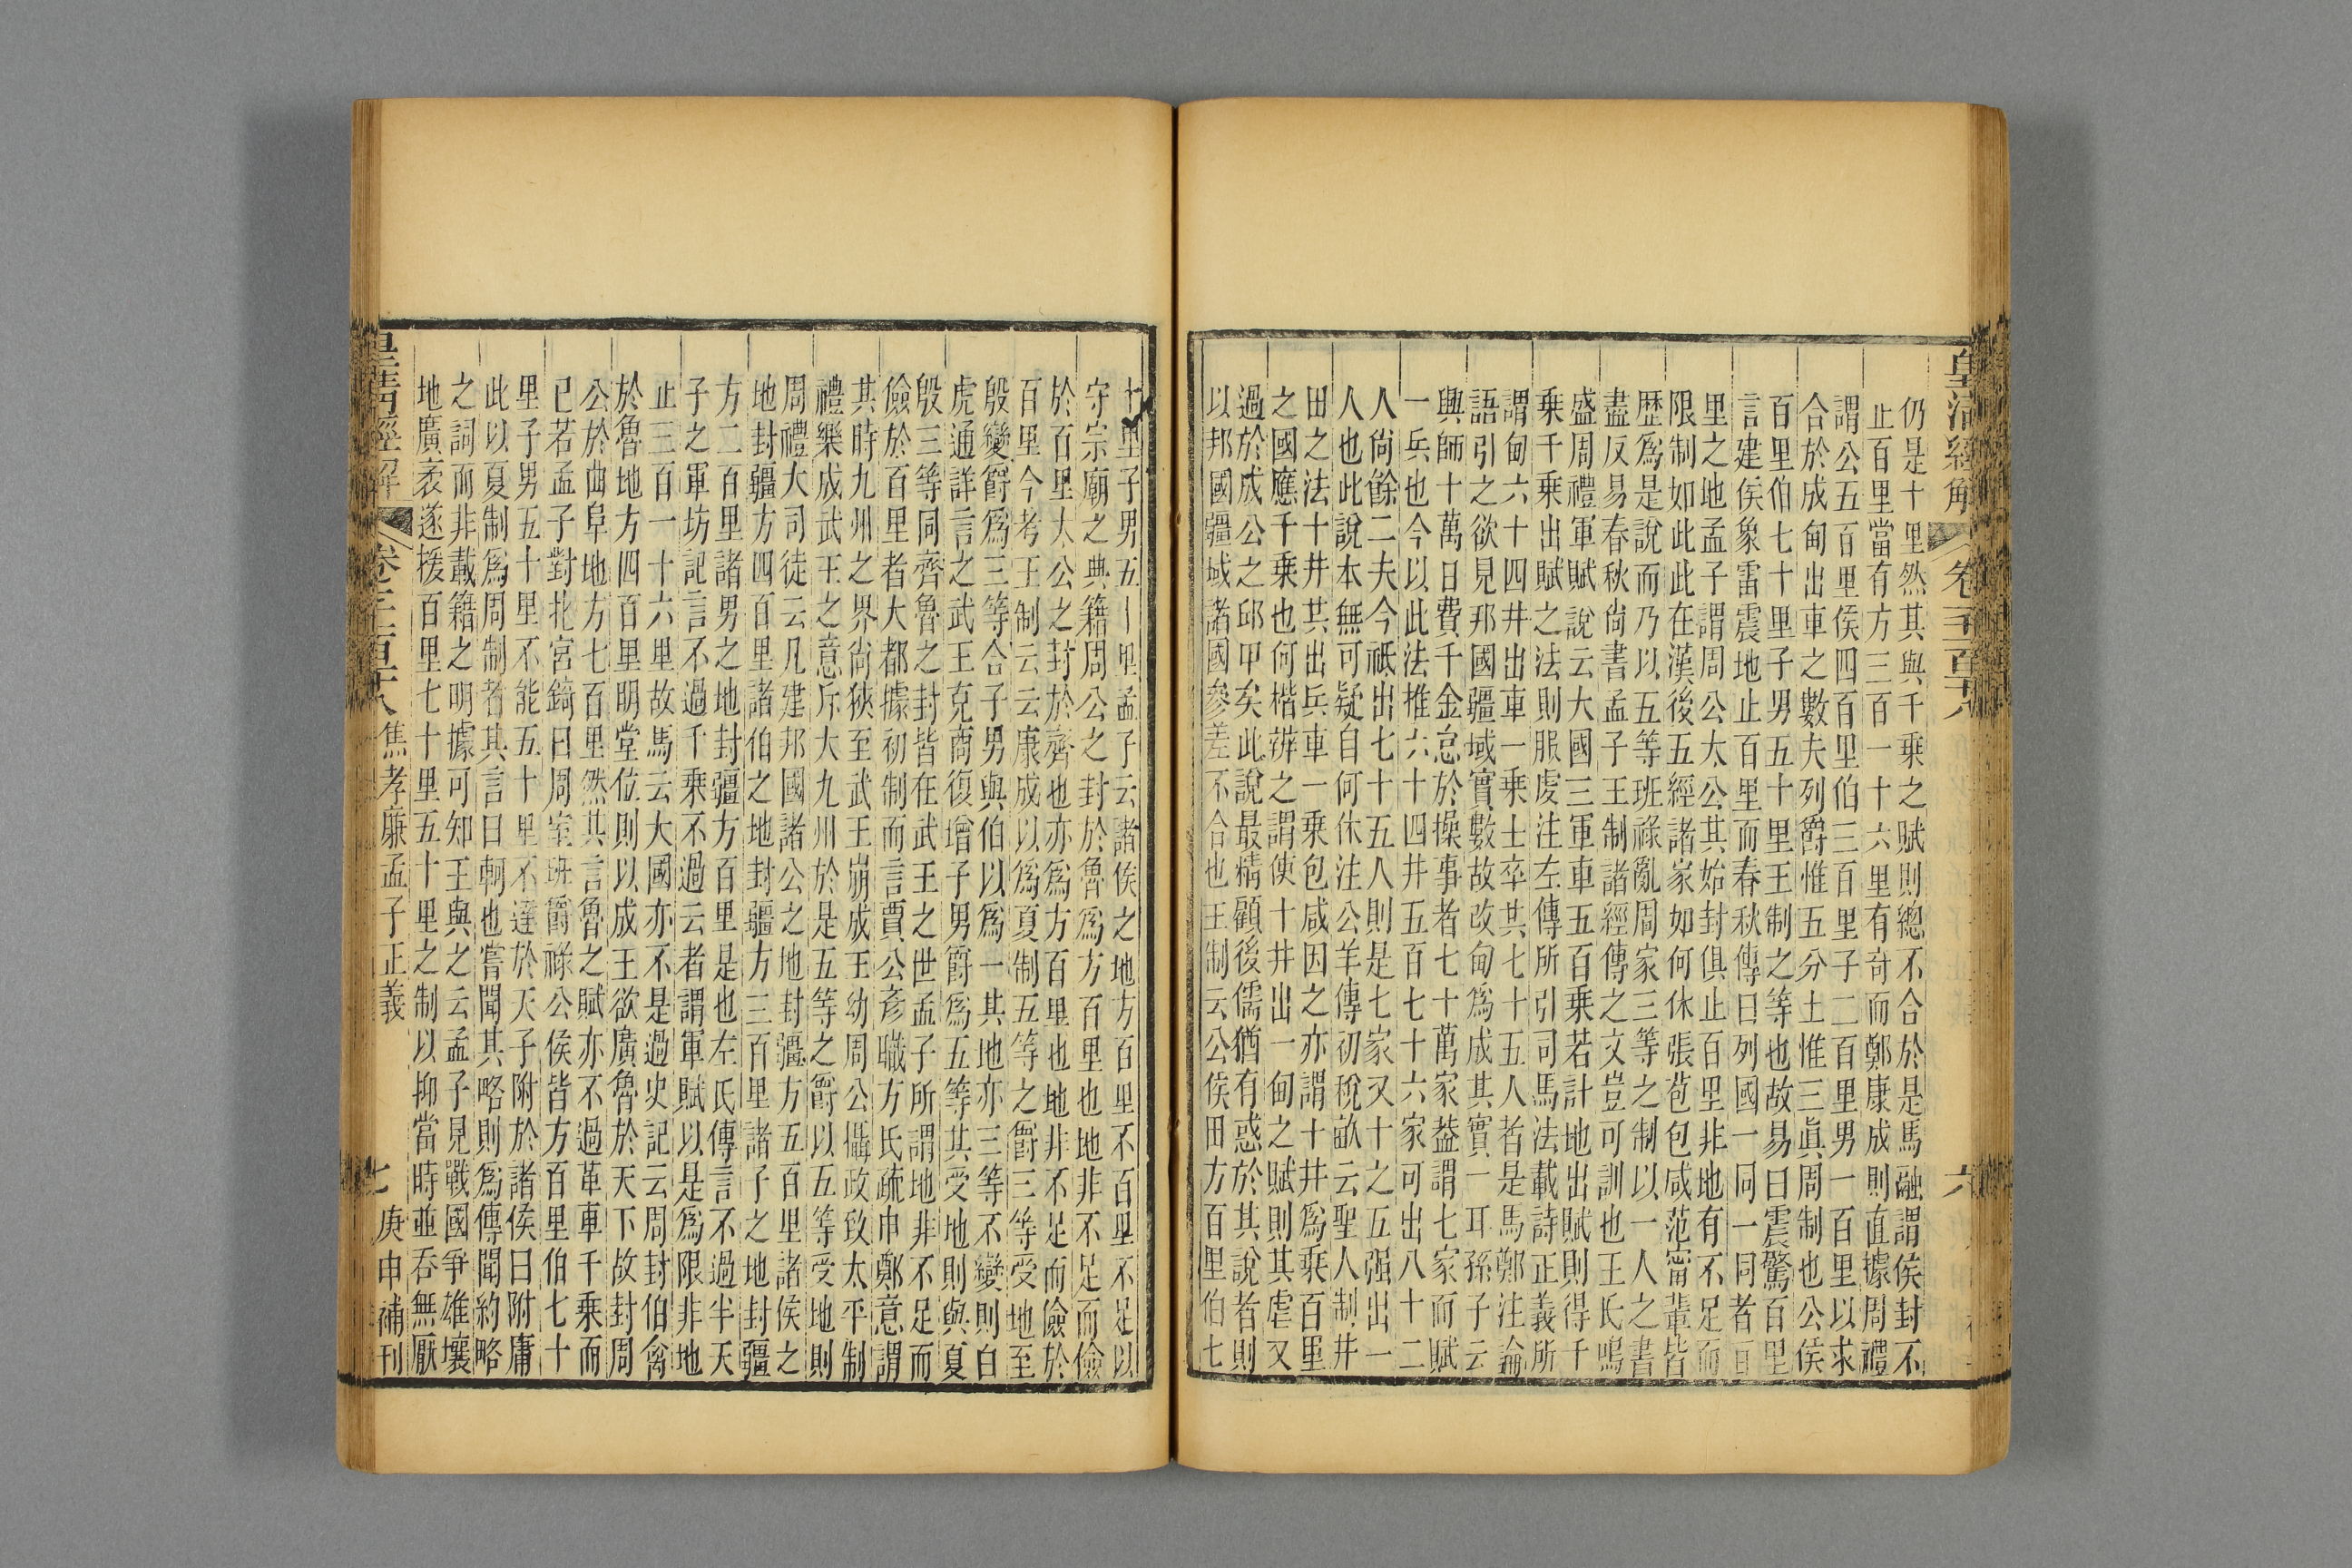 仍是十里然其與千乘之賦則總不合於是馬融謂侯封不
止百里當有方三百一十六里有奇而鄭康成則直據周禮
謂公五百里侯四百里伯三百里子二百里男一百里以求
合於成甸出車之數夫列爵惟五分土惟三眞周制也公侯
百里伯七十里子男五十里王制之等也故易曰震驚百里
言建侯象雷震地止百里而春秋傳曰列國一同一同者百
里之地孟子謂周公太公其始封俱止百里非地有不足而
限制如此此在漢後五經諸家如何休張苞包咸范甯輩皆
歷爲是說而乃以五等班祿亂周家三等之制以一人之書
盡反易春秋尙書孟子王制諸經傳之文豈可訓也王氏鳴
盛周禮軍賦說云大國三軍車五百乘若計地出賦則得千
乘千乘出賦之法則服虔注左傳所引司馬法載詩正義所
謂甸六十四井出車一乘士卒共七十五人者是馬鄭注論
語引之欲見邦國疆域實數故改甸爲成其實一耳孫子云
興師十萬日費千金怠於操事者七十萬家葢謂七家而賦
一兵也今以此法推六十四井五百七十六家可出八十二
人尙餘二夫今祇出七十五人則是七家又十之五强出一
人也此說本無可疑自何休注公羊傳初稅畝云聖人制井
田之法十井共出兵車一乘包咸因之亦謂十井爲乘百里
之國應千乘也何楷辨之謂使十井出一甸之賦則其虐又
過於成公之邱甲矣此說最精顧後儒猶有惑於其說者則
以邦國疆域諸國參差不合也王制云公侯田方百里伯七
皇清經解
卷千百六
六
十里子男五十里孟子云諸侯之地方百里不百里不足以
守宗廟之典籍周公之封於魯爲方百里也地非不足而儉
於百里太公之封於齊也亦爲方百里也地非不足而儉於
百里今考王制云云康成以爲夏制五等之爵三等受地至
殷變爵爲三等合子男與伯以爲一其地亦三等不變則白
虎通詳言之武王克商復增子男爵爲五等其受地則與夏
殷三等同齊魯之封皆在武王之世孟子所謂地非不足而
儉於百里者大都據初制而言賈公彥職方氏疏申鄭意謂
其時九州之界尙狹至武王崩成王幼周公攝政致太平制
禮樂成武王之意斥大九州於是五等之爵以五等受地則
周禮大司徒云凡建邦國諸公之地封疆方五百里諸侯之
地封疆方四百里諸伯之地封疆方三百里諸子之地封疆
方二百里諸男之地封疆方百里是也左氏傳言不過半天
子之軍坊記言不過千乘不過云者謂軍賦以是爲限非地
止三百一十六里故馬云大國亦不是過史記云周封伯禽
於魯地方四百里明堂位則以成王欲廣魯於天下故封周
公於曲阜地方七百里然其言魯之賦亦不過革車千乘而
已若孟子對北宮錡曰周室班爵祿公侯皆方百里伯七十
里子男五十里不能五十里不達於天子附於諸侯曰附庸
此以夏制爲周制者其言曰軻也嘗聞其略則爲傳聞約略
之詞而非載籍之明據可知王與之云孟子見戰國爭雄壤
地廣袤遂援百里七十里五十里之制以抑當時並吞無厭
皇清經解
焦孝廉孟子正義
七
庚申補刊